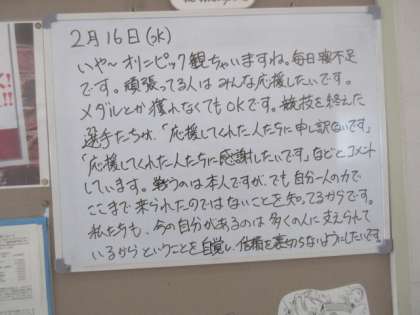 2月16日(水)
いや〜オリンピック観ちゃいますね。毎日寝不足
です。頑張ってる人はみんな応援したいです。
メダルとか獲れなくてもOKです。競技を終えた
選手たちが、「応援してくれた人たちに申し訳ないです」
「応援してくれた人たちに感謝したいです」などとコメント
しています。戦うのは本人ですが、でも自分一人の力で
ここまで来られたのではないことを知ってるからです。
私たちも、今の自分があるのは多くの人に支えられて
いるからということを自覚し、信頼を裏切らないようにしたいです